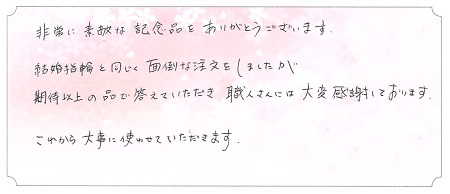 非常に素敵な記念品をありがとうございます.
結婚指輪と同じく面倒な注文をしましたが
期待以上の品で答えていただき 職人さんには大変感謝しております.
これから大事に使わせていただきます.